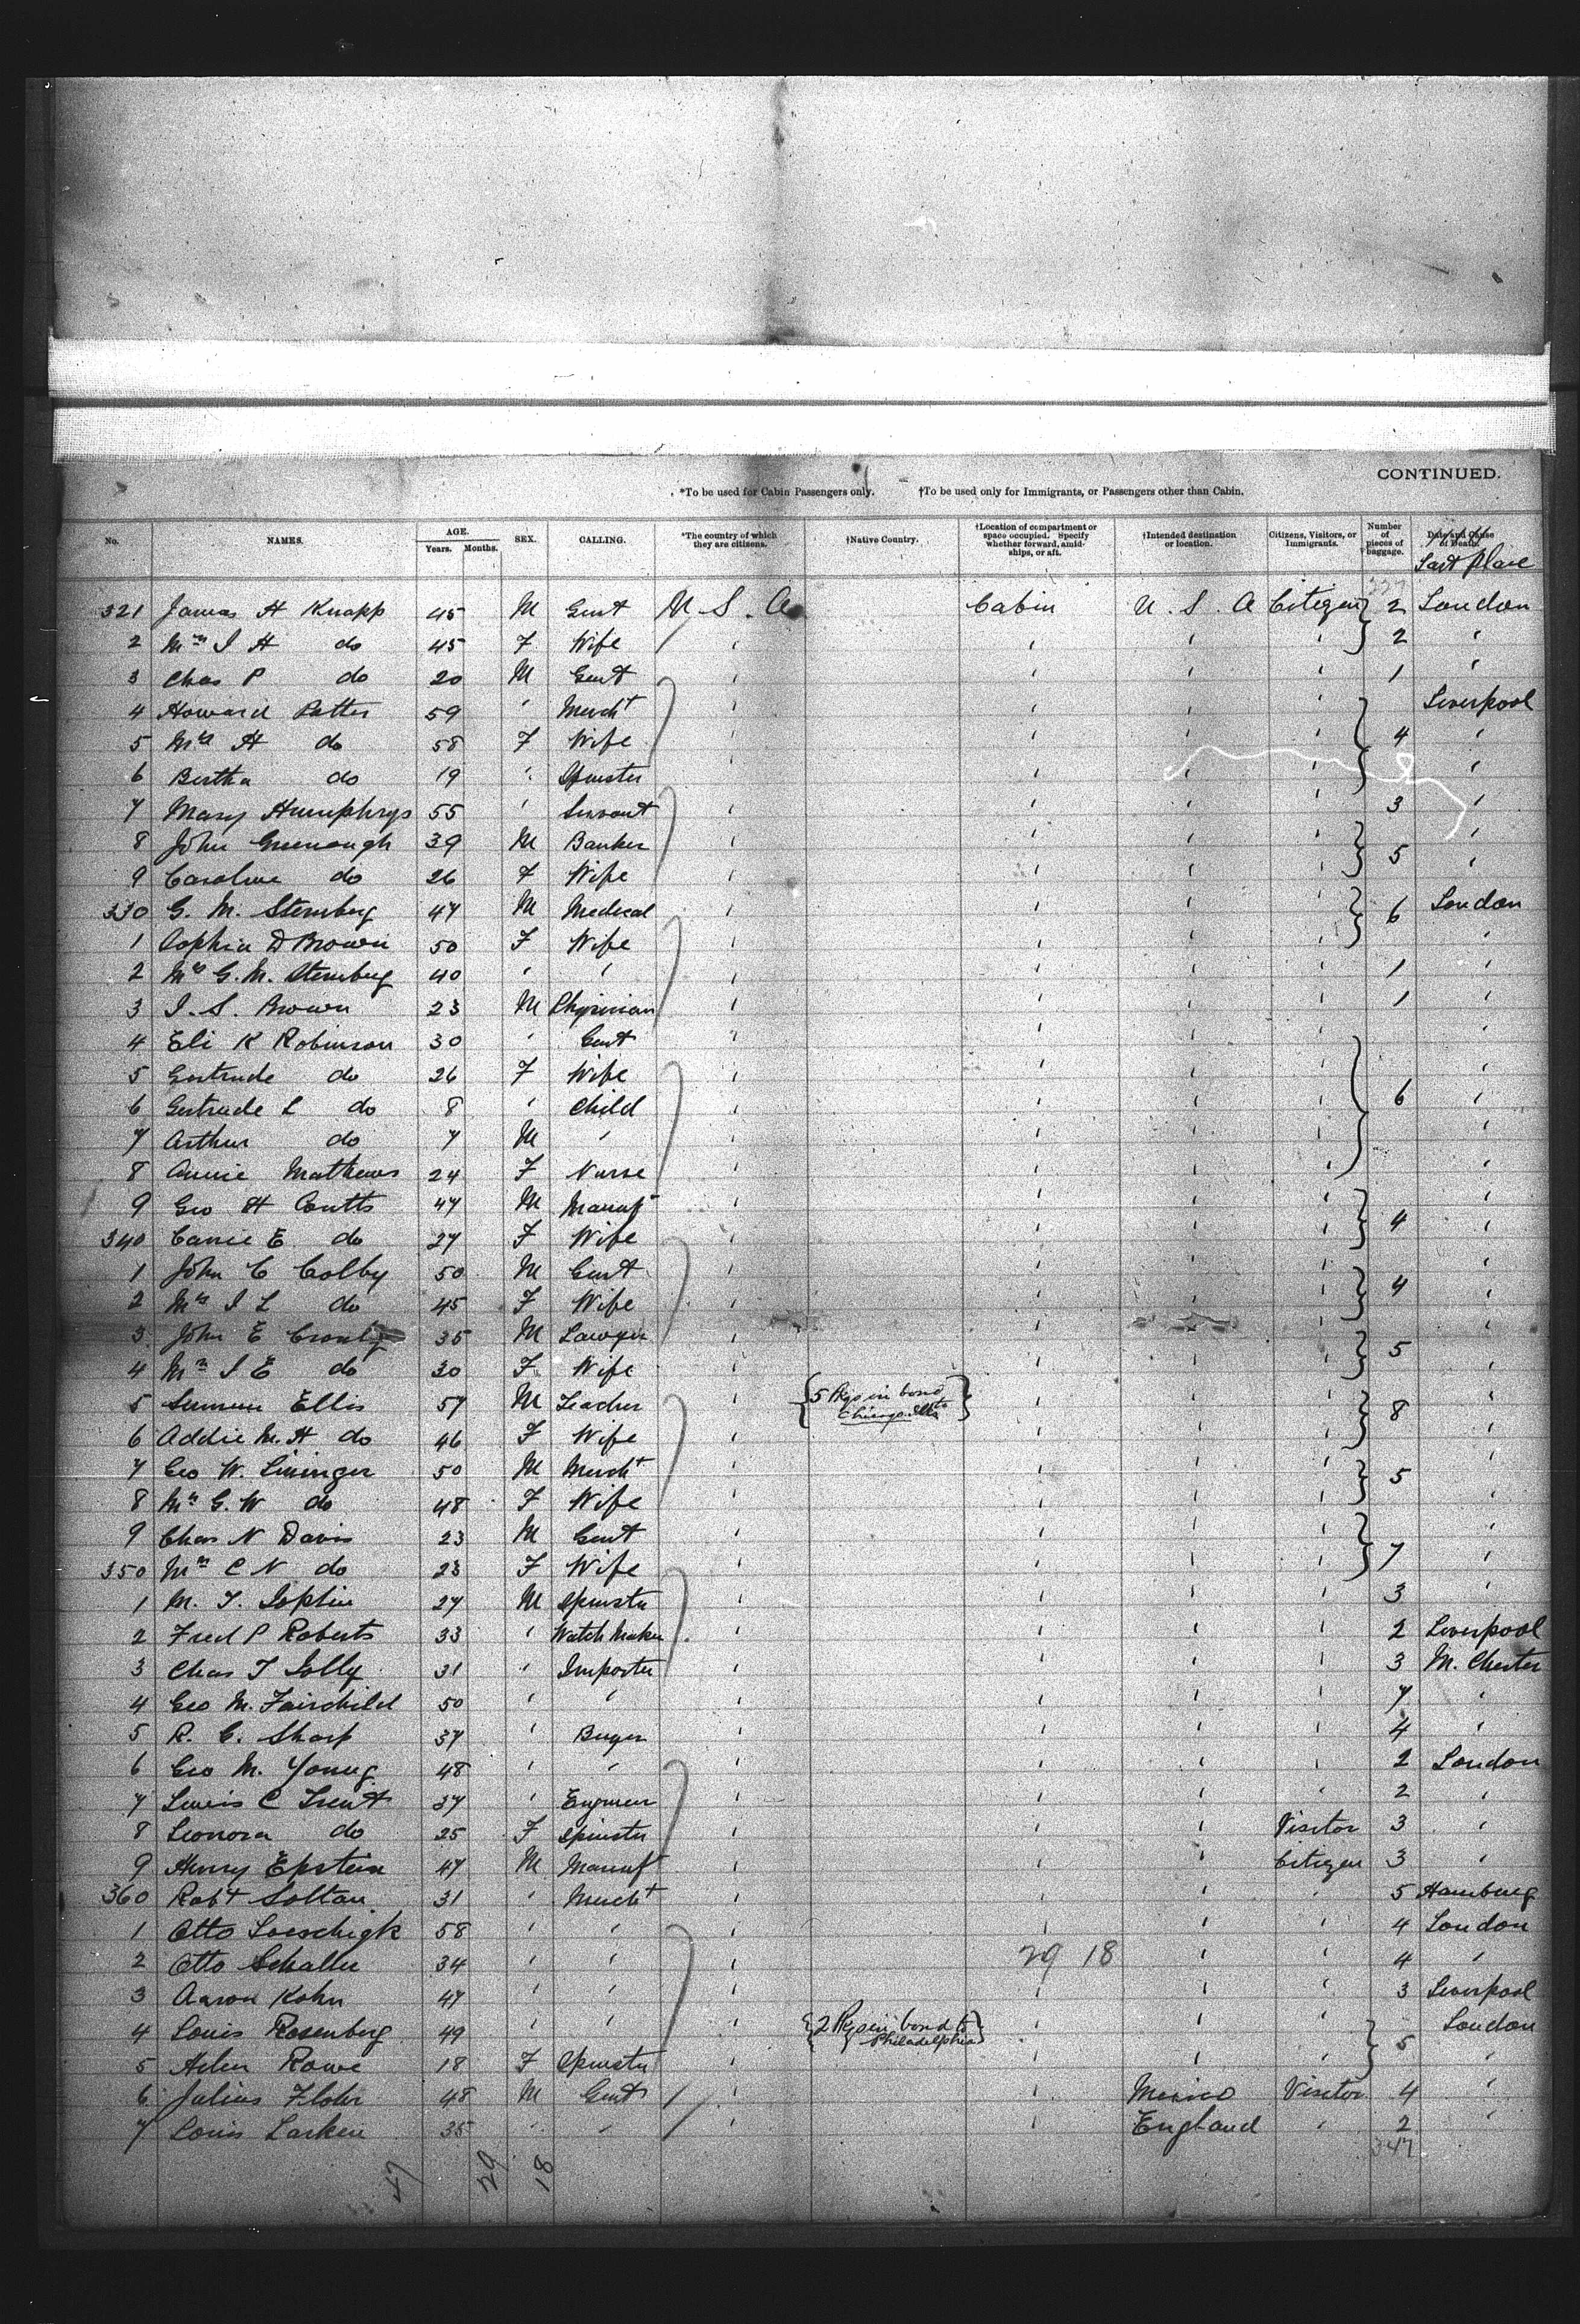 CONTINUED.
*To be used for Cabin Passengers only. †To be used only for Immigrants, or Passengers other than Cabin.
No. NAMES. AGE. Years. Months. SEX. CALLING. *The country of which they are citizens. †Native Country. †Location of compartment or space occupied. Specify whether forward, amidships, or aft. †Intended destination or location. Citizens, Visitors, or Immigrants. Number of pieces of baggage. Date and Cause of Death.
Last Place
321 James H Knapp 45 M Gent U. S. A Cabin U. S. A Citizen 2 London
2 Mrs J H do 45 F Wife ' ' ' ' 2 '
3 Chas P do 20 M Gent ' ' ' ' 1 '
4 Howard Potter 59 ' Mercht ' ' ' ' Liverpool
5 Mrs H do 58 F Wife ' ' ' ' 4 '
6 Bertha do 19 ' Spinster ' ' ' ' '
7 Mary Humphrys 55 ' Servant ' ' ' ' 3 '
8 John Greenough 39 M Banker ' ' ' ' '
9 Caroline do 26 F Wife ' ' ' ' 5 '
330 G. M. Sternberg 47 M Medical ' ' ' ' 6 London
1 Sophia D Brown 50 F Wife ' ' ' ' '
2 Mrs G. M. Sternberg 40 ' ' ' ' ' ' 1 '
3 J. S. Brown 23 M Physician ' ' ' ' 1 '
4 Eli K Robinson 30 ' Gent ' ' ' ' '
5 Gertrude do 26 F Wife ' ' ' ' '
6 Gertrude L do 8 ' Child ' ' ' ' 6 '
7 Arthur do 7 M ' ' ' ' ' '
8 Annie Mathews 24 F Nurse ' ' ' ' '
9 Geo H Coutts 47 M Manuf ' ' ' ' '
340 Carrie E do 27 F Wife ' ' ' ' 4 '
1 John C Colby 50 M Gent ' ' ' ' '
2 Mrs J L do 45 F Wife ' ' ' ' 4 '
3 John E 35 M Lawyer ' ' ' ' '
4 Mrs J E do 30 F Wife ' ' ' ' 5 '
5 Sumner Ellis 57 M Teacher ' 5 Pkgs in bond to Chicago Ills ' ' ' '
6 Addie M. H do 46 F Wife ' ' ' ' 8 '
7 Geo W. Lininger 50 M Mercht ' ' ' ' '
8 Mrs G. W do 48 F Wife ' ' ' ' 5 '
9 Chas N Davis 23 M Gent ' ' ' ' '
350 Mrs C N do 23 F Wife ' ' ' ' 7 '
1 M. T. 27 M Spinster ' ' ' ' 3 '
2 Fred P Roberts 33 ' Watch Maker ' ' ' ' 2 Liverpool
3 Chas T Jolly 31 ' Importer ' ' ' ' 3 M. Chester
4 Geo M. Fairchild 50 ' ' ' ' ' ' 7 '
5 R. C. Sharp 37 ' Buyer ' ' ' ' 4 '
6 Geo M. Young 48 ' ' ' ' ' ' 2 London
7 Lewis C Trent 37 ' Engineer ' ' ' ' 2 '
8 Leonora do 25 F Spinster ' ' ' Visitor 3 '
9 Henry Epstein 47 M Manuft ' ' ' Citizen 3 '
360 Robt Soltau 31 ' Mercht ' ' ' ' 5 Hamburg
1 Otto Loeschigk 58 ' ' ' ' ' ' 4 London
2 Otto Schaller 34 ' ' ' 29 18 ' ' 4 '
3 Aaron Kohn 47 ' ' ' ' ' ' 3 Liverpool
4 Louis Rosenberg 49 ' ' ' 2 Pkgs in bond to Philadelphia ' ' ' London
5 Helen Rowe 18 F Spinster ' ' ' ' 5 '
6 Julius Flohr 48 M Gent ' ' Mexico Visitor 4 '
7 Louis Larkin 35 ' ' ' ' England ' 2 '
347
47 29 18